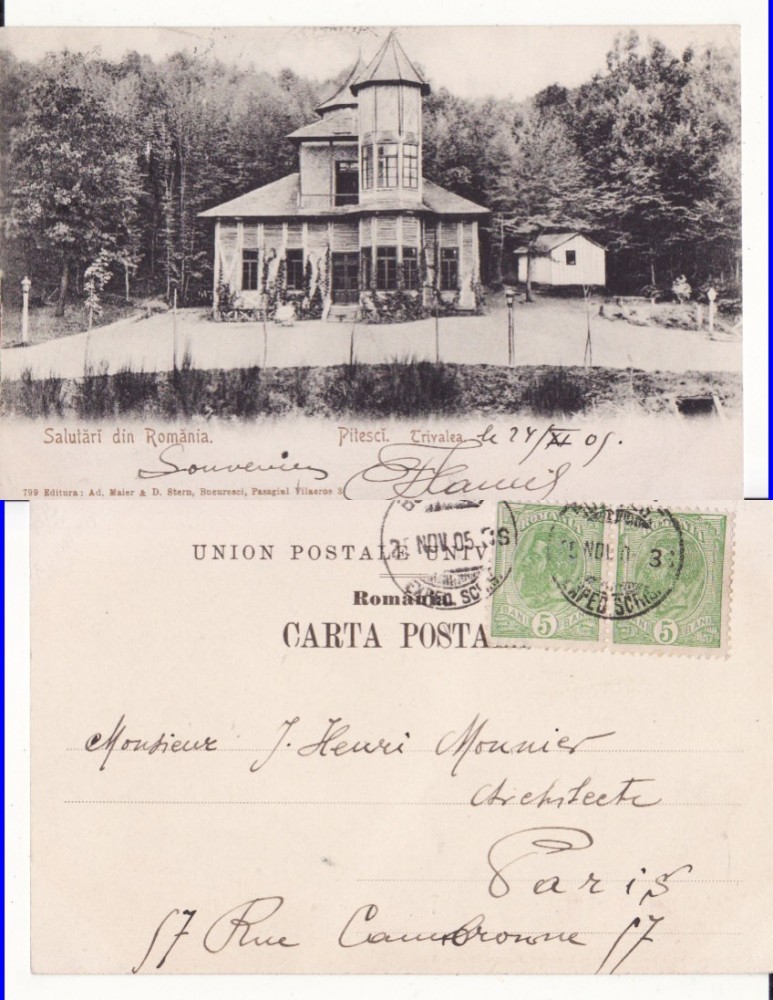 Salutări din România. Pitescĭ. Trivalea. le 24/XI 05.
Souvenir
799 Editura: Ad. Maier & D. Stern, Bucuresci, Pasagiul Vilacros 3
25 NOV. 05 3S
EXPED. SCRIS
NOV. 3S
EXPED SCRIS
ROMANIA
ROMANIA
BANI 5 BANI
BANI 5 BANI
UNION POSTALE UNIV
România
CARTA POSTA
Monsieur J. Henri Mounier
Architecte
Paris
57 Rue Cambronne 57